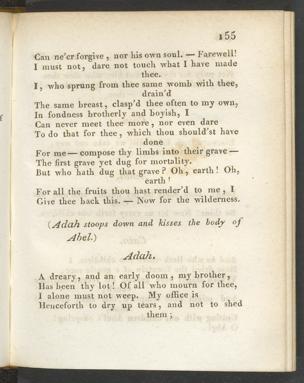 155
Can ne'er forgive , nor his own soul. — Farewell!
I must not, dare not touch what I have made
thee.
I , who sprung from thee same womb with thee,
drain'd
The same breast, clasp'd thee often to my own,
In fondness brotherly and boyish, I
Can never meet thee more , nor even dare
To do that for thee , which thou should'st have
done
For me — compose thy limbs into their grave —
The first grave yet dug for mortality.
But who hath dug that grave ? Oh, earth ! Oh,
earth !
For all the fruits thou hast render'd to me , I
Give thee back this. — Now for the wilderness.
(Adah stoops down and kisses the body of
Abel.)
Adah.
A dreary, and an early doom , my brother,
Has been thy lot ! Of all who mourn for thee,
I alone must not weep. My office is
Henceforth to dry up tears , and not to shed
them ;